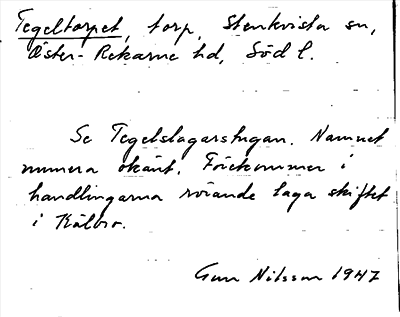 Tegeltorpet, torp, Stenkvista sn,
Öster-Rekarne hd, Södl.
Se Tegelslagarstugan. Namnet
numera okänt. Förekommer i
handlingarna rörande laga skiftet
i Kälbro.
Gun Nilsson 1947